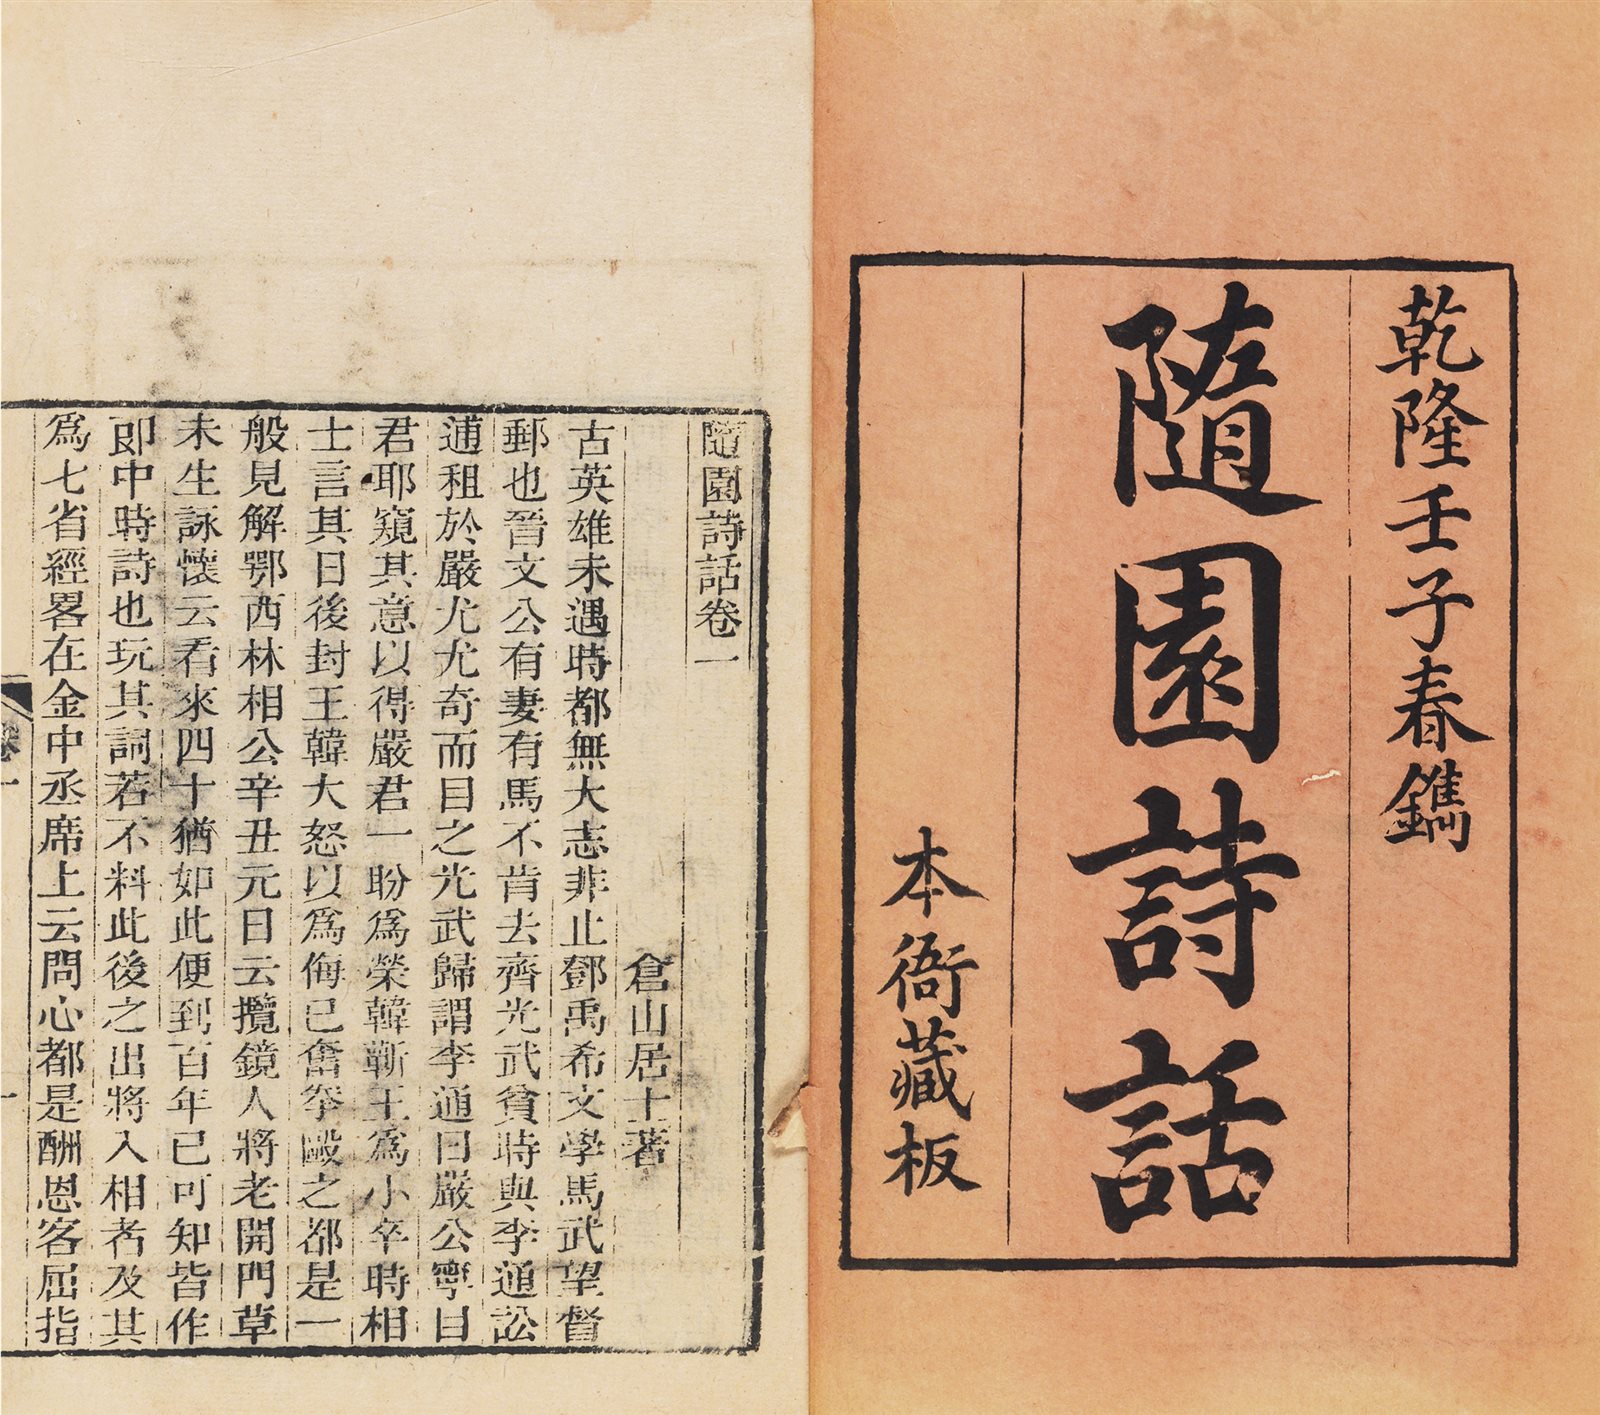 乾隆壬子春鐫
隨園詩話
本衙藏板
隨園詩話卷一
倉山居士著
古英雄未遇時都無大志非止鄧禹希文學馬武望督
郵也晉文公有妻有馬不肯去齊光武貧時與李通訟
逋租於嚴尤尤奇而目之光武歸謂李通曰嚴公寧目
君耶窺其意以得嚴君一盼爲榮韓蘄王爲小卒時相
士言其日後封王韓大怒以爲侮已奮拳毆之都是一
般見解鄂西林相公辛丑元日云攬鏡人將老開門草
未生詠懷云看來四十猶如此便到百年已可知皆作
郎中時詩也玩其詞若不料此後之出將入相者及其
爲七省經畧在金中丞席上云問心都是酬恩客屈指
卷一
一